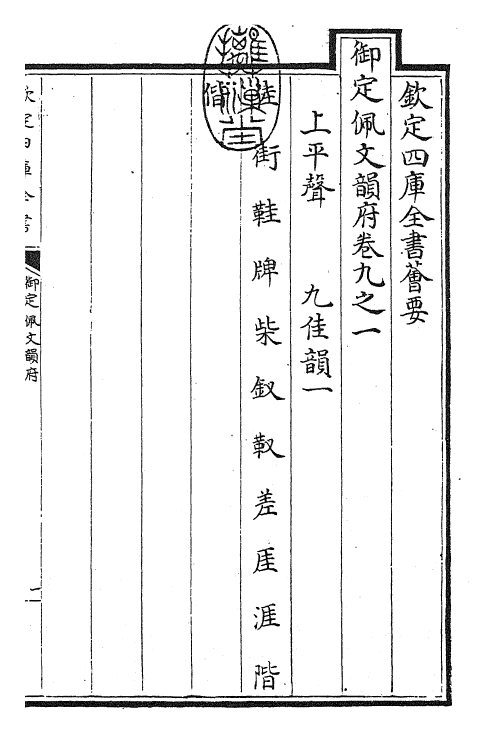 欽定四庫全書薈要
御定佩文韻府卷九之一
上平聲 九佳韻一
街鞵牌柴釵靫差厓涯階
欽定四庫全書
御定佩文韻府
一